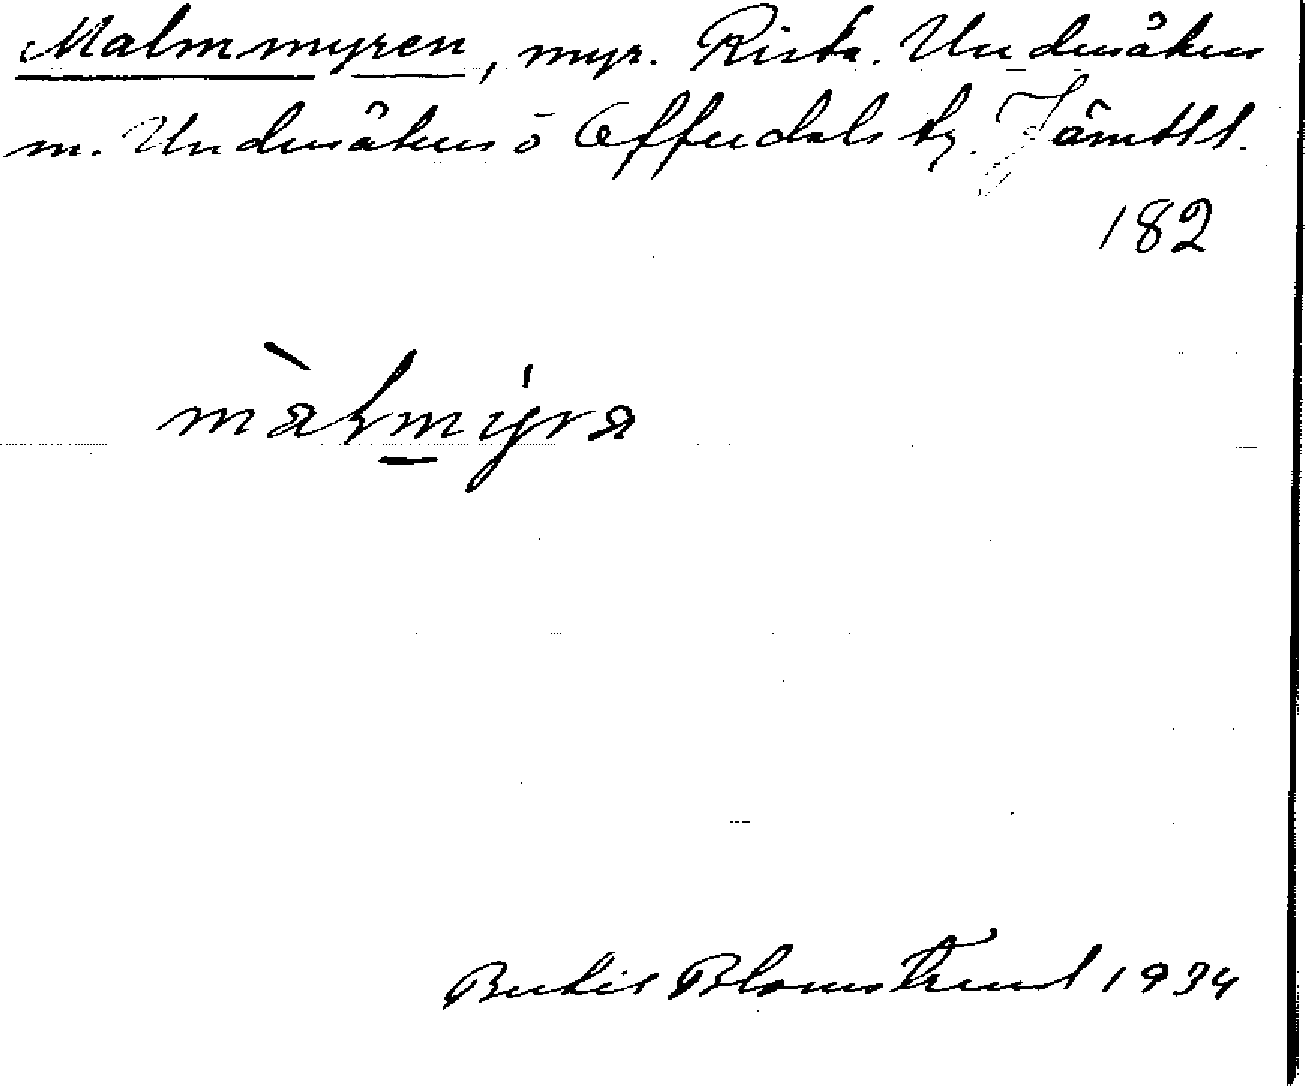 Malmmyren, myr. Rista. Undersåkers
sn. Undersåkers o Offerdals tg. Jämtl l.
182
màlmýra
Bertil Blomstrand 1934